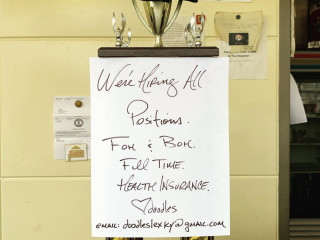 We're Hiring All
Positions.
FOH & BOH.
Full Time.
Health Insurance.
♡doodles
email: doodleslexky@gmail.com